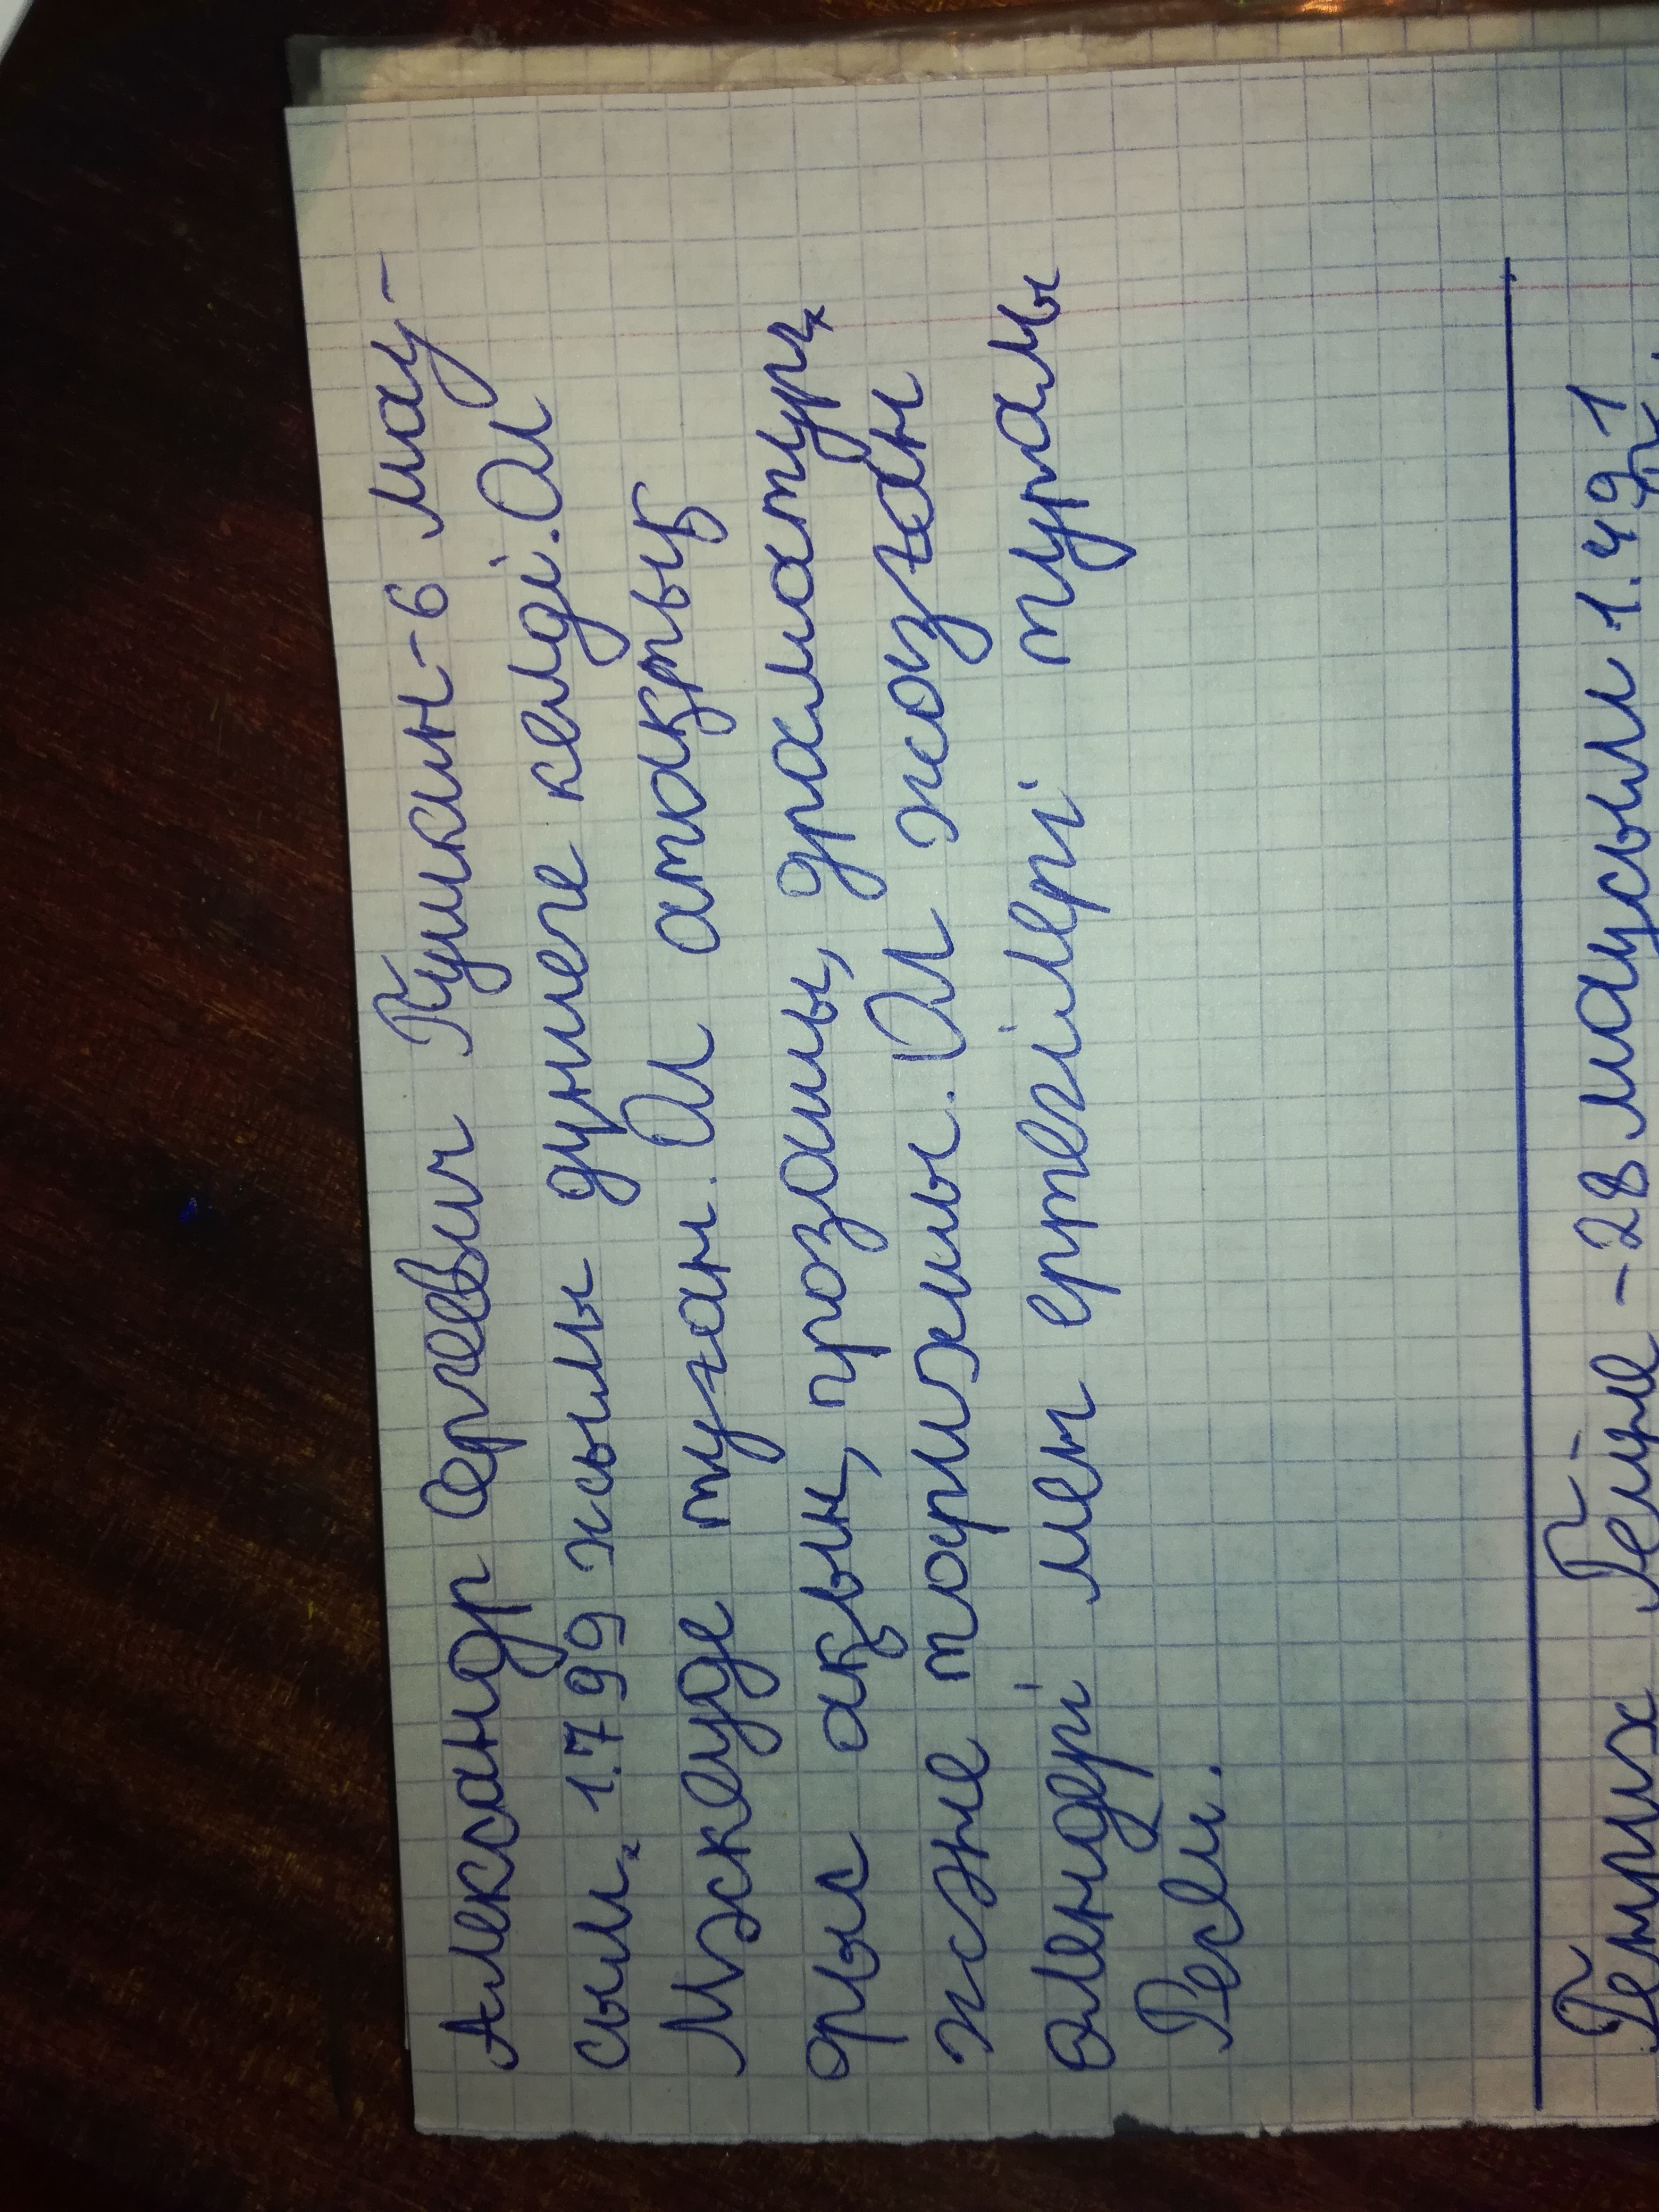 Александр Сергевич Пушкин-6 мау-
сым. 1.799 жылы дүниеге келді. Ол
Мәскеуде туған. Ол атақты
орыс ақын, прозашы, драматург,
және тарихшы. Ол жазған
өлендері мен ертегілері туралы
Генрих - 28 маусым 1.491